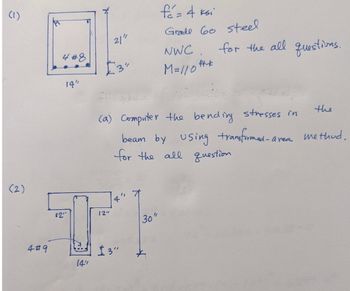 (1)
f'c = 4 ksi
Grade 60 steel
NWC. for the all questions.
M=110 ft-k
21"
4 #8
3"
14"
(a) Computer the bending stresses in the
beam by using transformed-area method.
for the all question
(2)
4"
12"
12"
30"
4#9
3"
14"